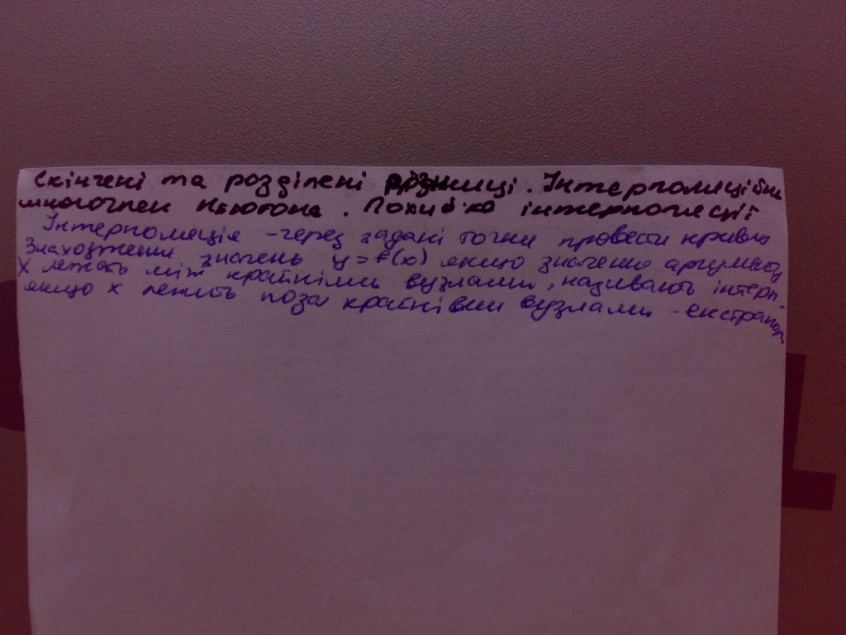 Скінчені та розділені різниці. Інтерполяційни
многочлен Ньютона. Похибка інтерполяції
Інтерполяція - через задані точки провести криву
Знаходження значень y=f(x) якщо значення аргументу
X лежать між крайніми вузлами, називають інтерп.
якщо x лежить поза крайніми вузлами - екстрапол